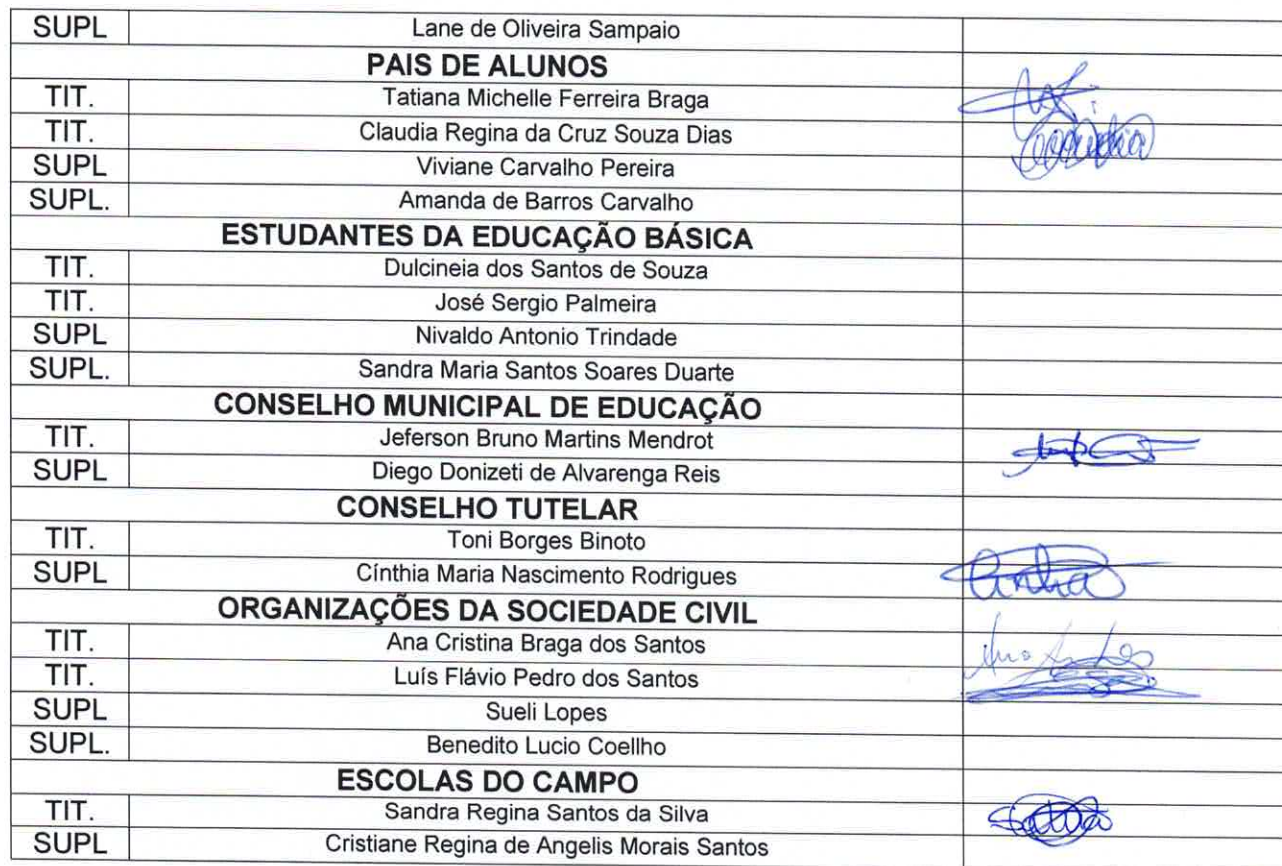 SUPL Lane de Oliveira Sampaio
PAIS DE ALUNOS
TIT. Tatiana Michelle Ferreira Braga
TIT. Claudia Regina da Cruz Souza Dias
SUPL Viviane Carvalho Pereira
SUPL. Amanda de Barros Carvalho
ESTUDANTES DA EDUCAÇÃO BÁSICA
TIT. Dulcineia dos Santos de Souza
TIT. José Sergio Palmeira
SUPL Nivaldo Antonio Trindade
SUPL. Sandra Maria Santos Soares Duarte
CONSELHO MUNICIPAL DE EDUCAÇÃO
TIT. Jeferson Bruno Martins Mendrot
SUPL Diego Donizeti de Alvarenga Reis
CONSELHO TUTELAR
TIT. Toni Borges Binoto
SUPL Cínthia Maria Nascimento Rodrigues
ORGANIZAÇÕES DA SOCIEDADE CIVIL
TIT. Ana Cristina Braga dos Santos
TIT. Luís Flávio Pedro dos Santos
SUPL Sueli Lopes
SUPL. Benedito Lucio Coellho
ESCOLAS DO CAMPO
TIT. Sandra Regina Santos da Silva
SUPL Cristiane Regina de Angelis Morais Santos